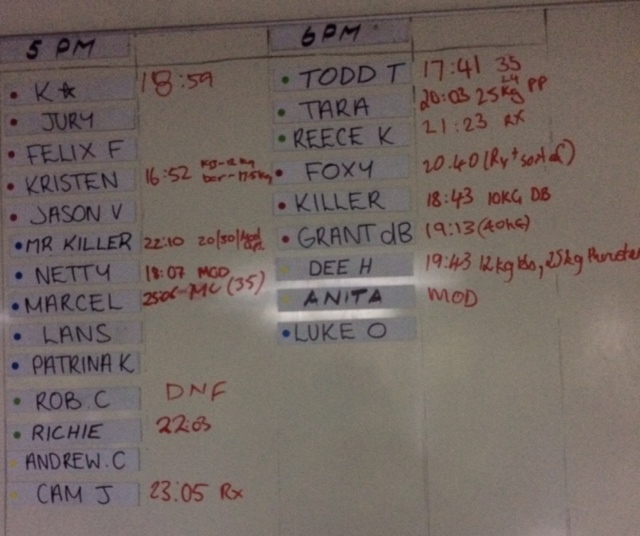 5 PM
K☆ 18:59
JURY
FELIX F
KRISTEN 16:52
JASON V
MR KILLER 22:10 20/30/
NETTY 18:07 MOD
MARCEL 2506-MC (35)
LANS
PATRINA K
ROB.C DNF
RICHIE 22:03
ANDREW.C
CAM J 23:05 Rx
6PM
TODD T 17:41 35
TARA 20:03 25kg PP
REECE K 21:23 RX
FOXY 20.40 (Rx + sort of)
KILLER 18:43 10KG DB
GRANT dB 19:13 (40kg)
DEE H 19:43 12kg kb, 25kg thruster
ANITA MOD
LUKE O